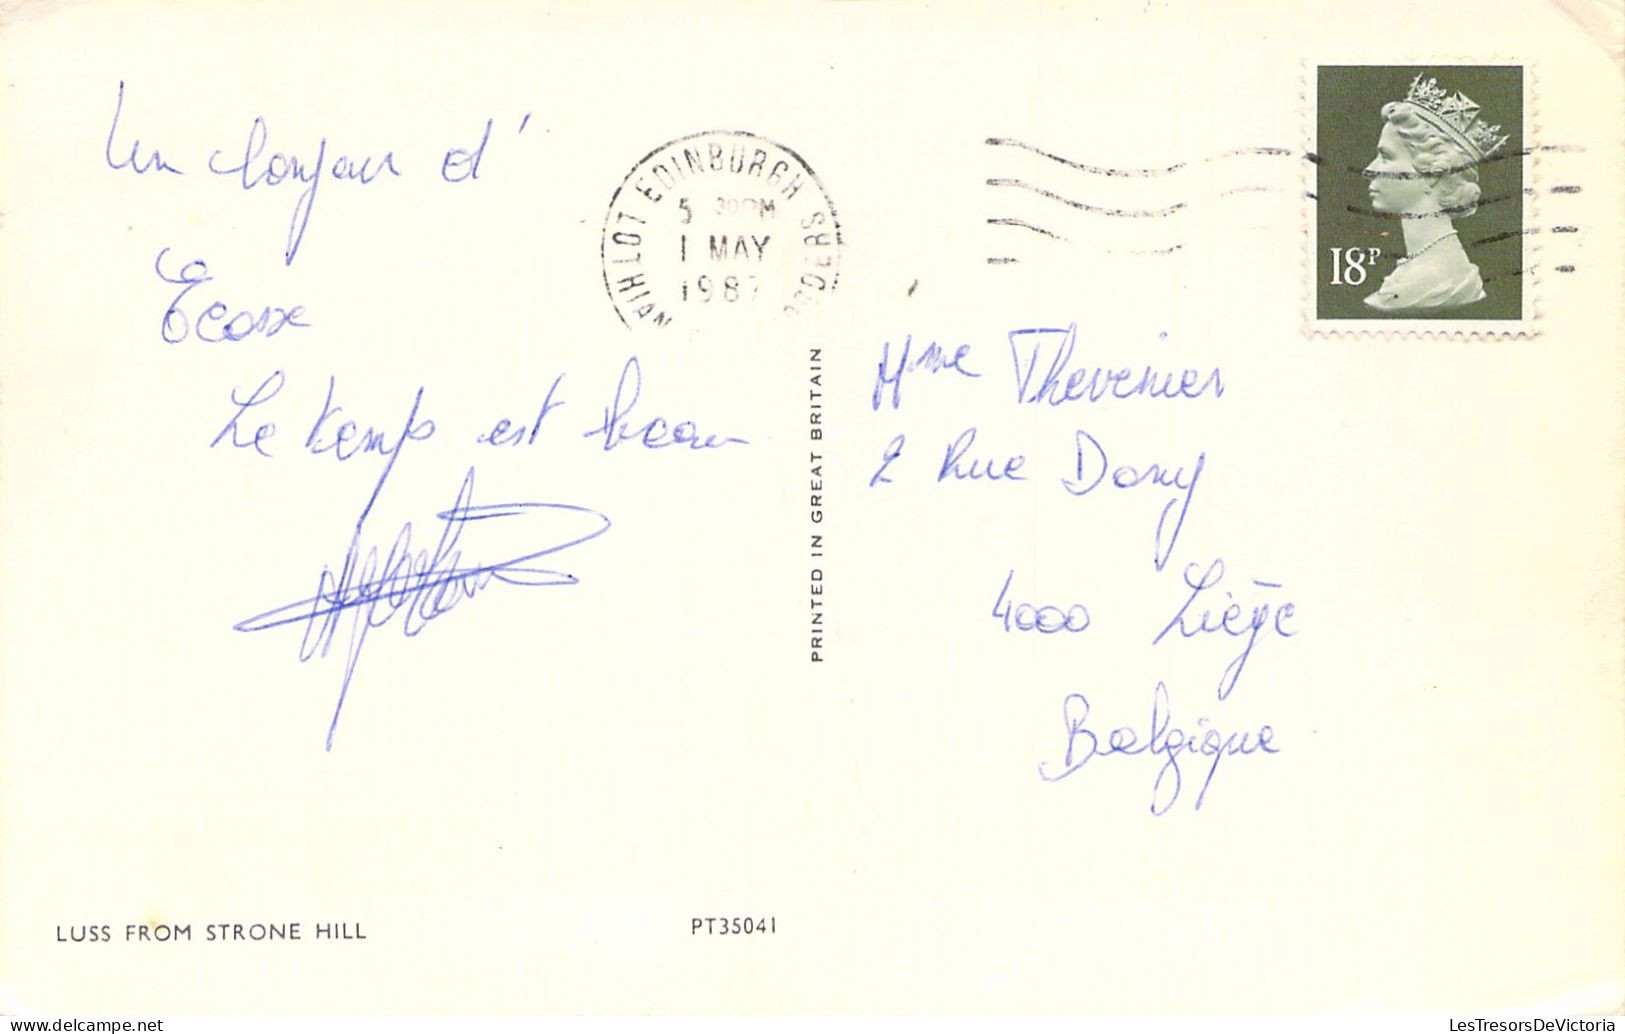 Un bonjour d'
Ecosse
Le temps est beau
LOTHIAN EDINBURGH BORDERS
5 30PM
1 MAY
1987
18P
PRINTED IN GREAT BRITAIN
Mme Thevenier
2 Rue Dony
4000 Liège
Belgique
LUSS FROM STRONE HILL
PT35041
LesTresorsDeVictoria
www.delcampe.net